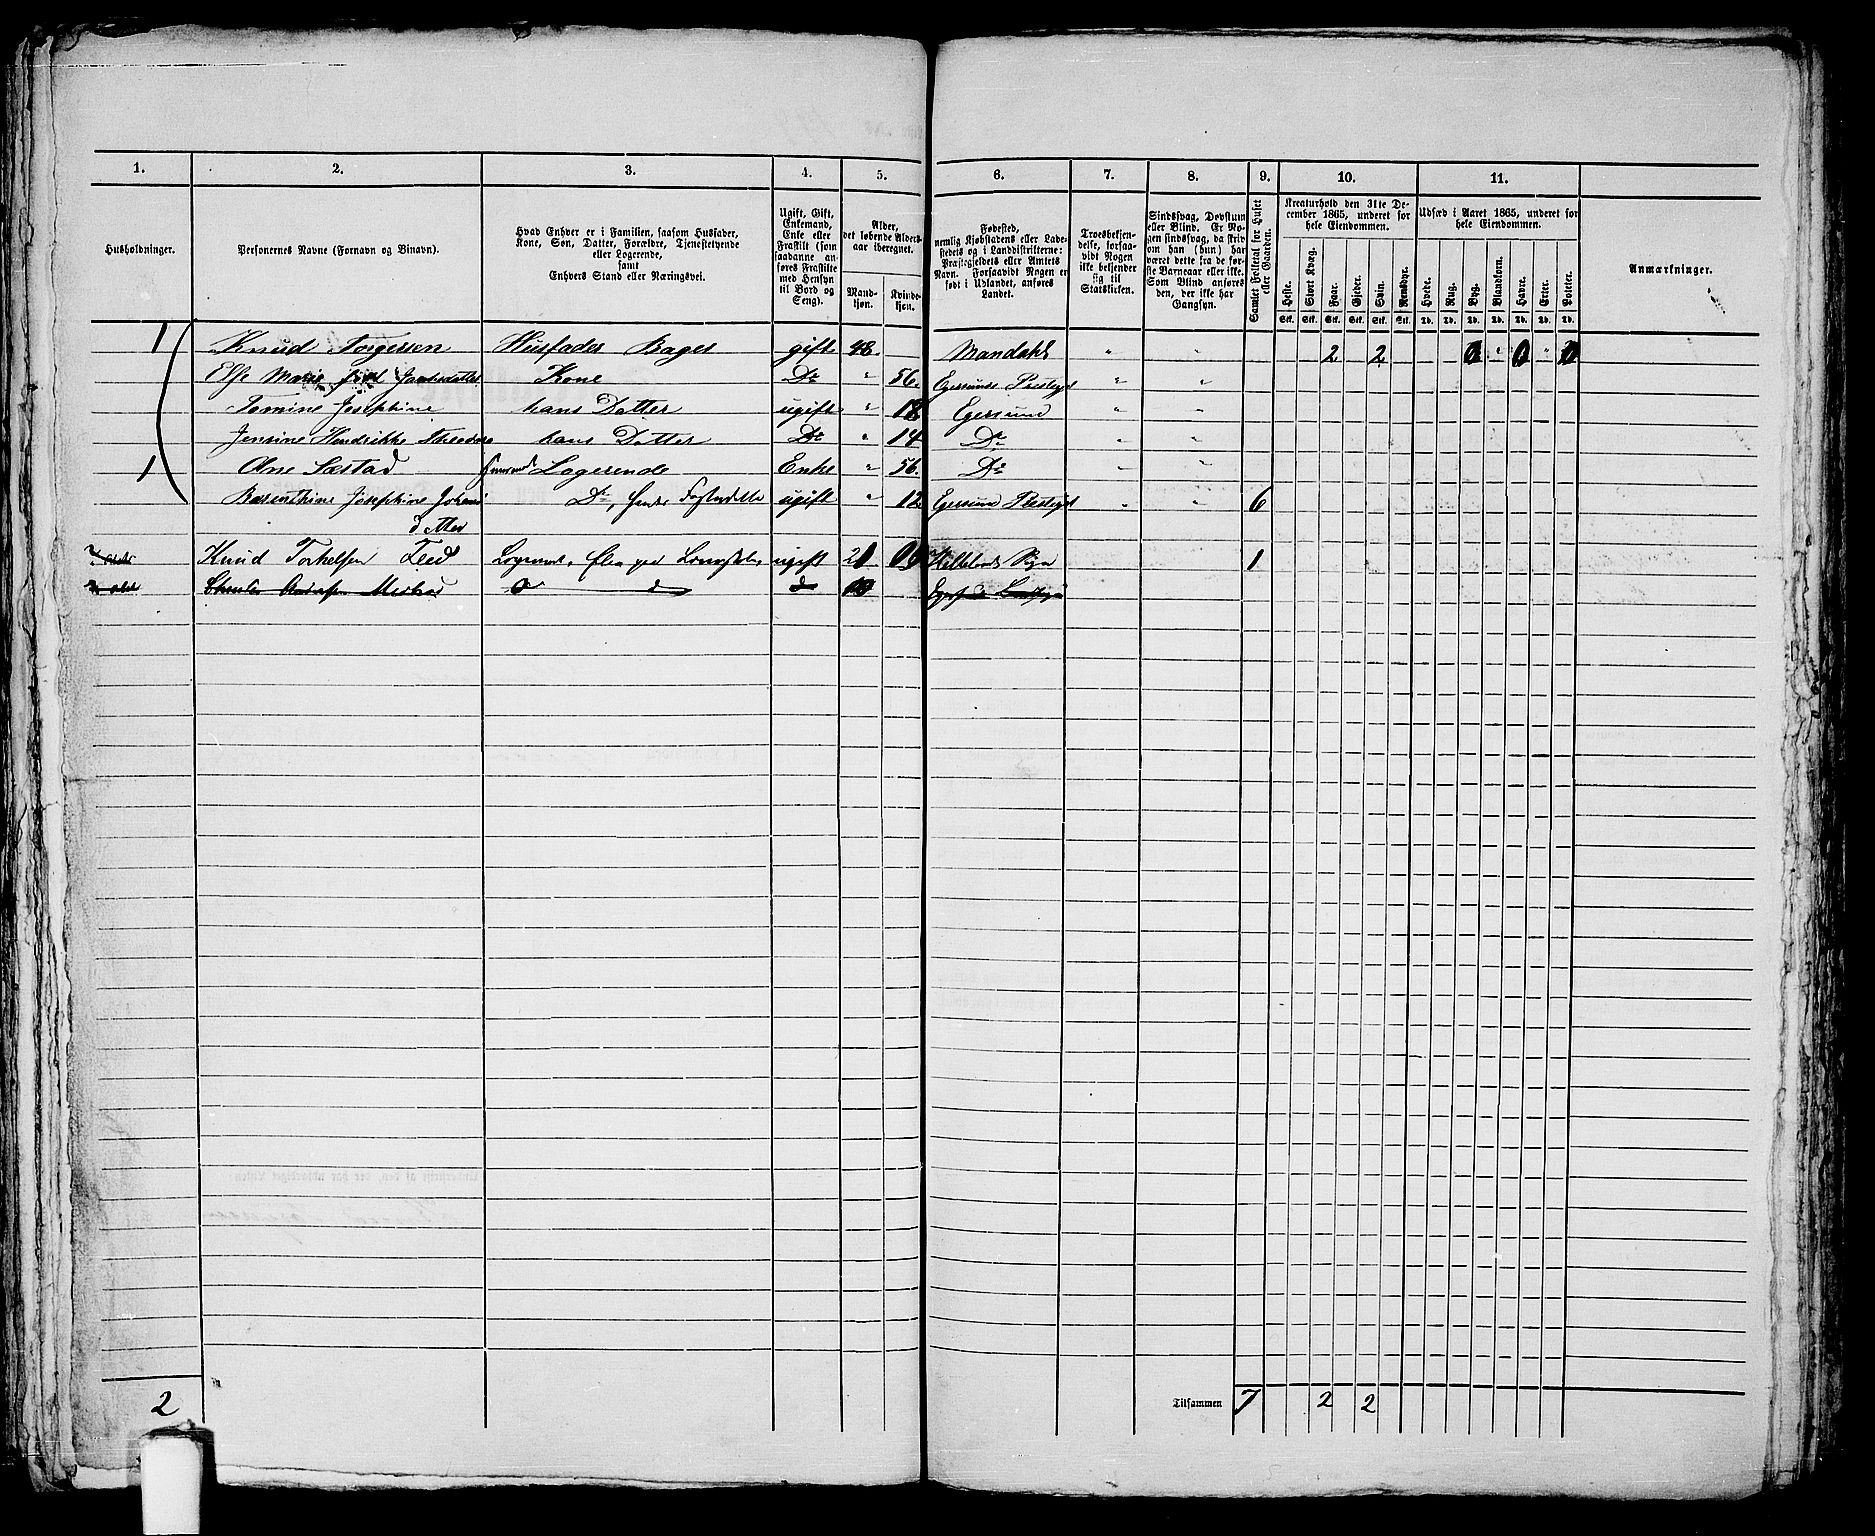 1. 2. 3. 4. 5. 6. 7. 8. 9. 10. 11.
Husholdninger.
Personernes Navne (Fornavn og Binavn).
Hvad Enhver er i Familien, saasom Husfader,
Kone, Søn, Datter, Forældre, Tjenestetyende
eller Logerende,
samt
Enhvers Stand eller Næringsvei.
Ugift, Gift,
Enkemand,
Enke eller
Fraskilt (som
saadanne an-
føres Fraskilte
med Hensyn
til Bord og
Seng).
Alder,
det løbende Alders-
aar iberegnet.
Mand-
kjøn.
Kvinde-
kjøn.
Fødested,
nemlig Kjøbstadens eller Lade-
stedets og i Landdistrikterne:
Præstegjeldets eller Amtets
Navn. Forsaavidt Nogen er
født i Udlandet, anføres
Landet.
Troesbekjen-
delse, forsaa-
vidt Nogen
ikke bekjender
sig til
Statskirken.
Sindssvag, Døvstum
eller Blind. Er No-
gen sindssvag, da skriv
om han (hun) har
været dette fra de før-
ste Barneaar eller ikke.
Som Blind anføres
den, der ikke har
Gangsyn.
Samlet Folketal for Huset
eller Gaarden.
Kreaturhold den 31te De-
cember 1865, underet for
hele Eiendommen.
Heste. Stort Kvæg. Faar. Gjeder. Sviin. Rensdyr.
Stk. Stk. Stk. Stk. Stk. Stk.
Udsæd i Aaret 1865, underet for
hele Eiendommen.
Hvede. Rug. Byg. Blandkorn. Havre. Erter. Poteter.
Td. Td. Td. Td. Td. Td. Td.
Anmærkninger.
1 Knud Torgersen Husfader Bager gift 48. Mandahl " " 2 2 0 " 0 " 0
Else Marie Kone Do " 56. Egersunds Prestegd " "
Tomine Josephine hans Datter ugift " 18 Egersund " "
Jensine Hendrikke Theodora hans Datter Do " 14 Do " "
1 Ane Sæstad Logerende Enke " 56. Do " "
Berenthine Josephine Johans Do, hendes Fosterdatter ugift " 12. Egersund Prestegd " " 6
datter
Knud Torkelsen ugift 1
Tilsammen 7 2 2
2